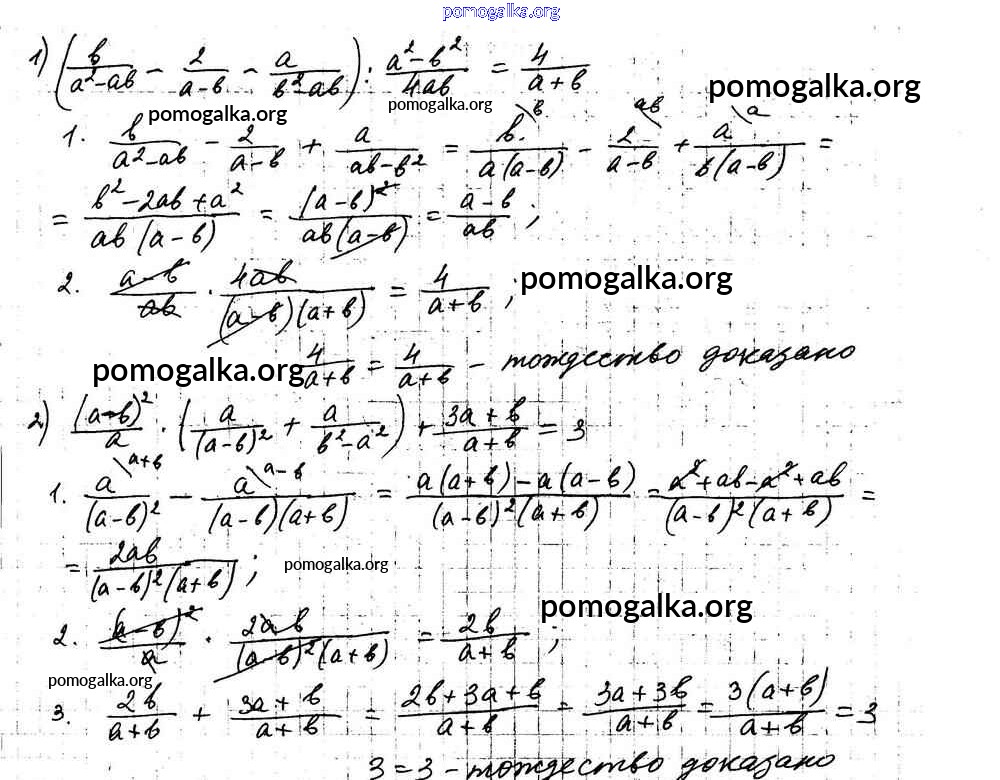 pomogalka.org
1) (b/(a²-ab) - 2/(a-b) - a/(b²-ab)) : (a²-b²)/(4ab) = 4/(a+b)
pomogalka.org
pomogalka.org pomogalka.org
1. b/(a²-ab) - 2/(a-b) + a/(ab-b²) = b\b/(a(a-b)) - 2\ab/(a-b) + a\a/(b(a-b)) =
= (b²-2ab+a²)/(ab(a-b)) = (a-b)²/(ab(a-b)) = (a-b)/(ab) ;
2. (a-b)/(ab) · 4ab/((a-b)(a+b)) = 4/(a+b) ; pomogalka.org
pomogalka.org 4/(a+b) = 4/(a+b) - тождество доказано
2) (a-b)²/a · (a/(a-b)² + a/(b²-a²)) + (3a+b)/(a+b) = 3
1. a\a+b/(a-b)² - a\a-b/((a-b)(a+b)) = (a(a+b)-a(a-b))/((a-b)²(a+b)) = (a²+ab-a²+ab)/((a-b)²(a+b)) =
= 2ab/((a-b)²(a+b)) ; pomogalka.org
pomogalka.org
2. (a-b)²/a · 2ab/((a-b)²(a+b)) = 2b/(a+b) ;
pomogalka.org
3. 2b/(a+b) + (3a+b)/(a+b) = (2b+3a+b)/(a+b) = (3a+3b)/(a+b) = 3(a+b)/(a+b) = 3
3=3 - тождество доказано